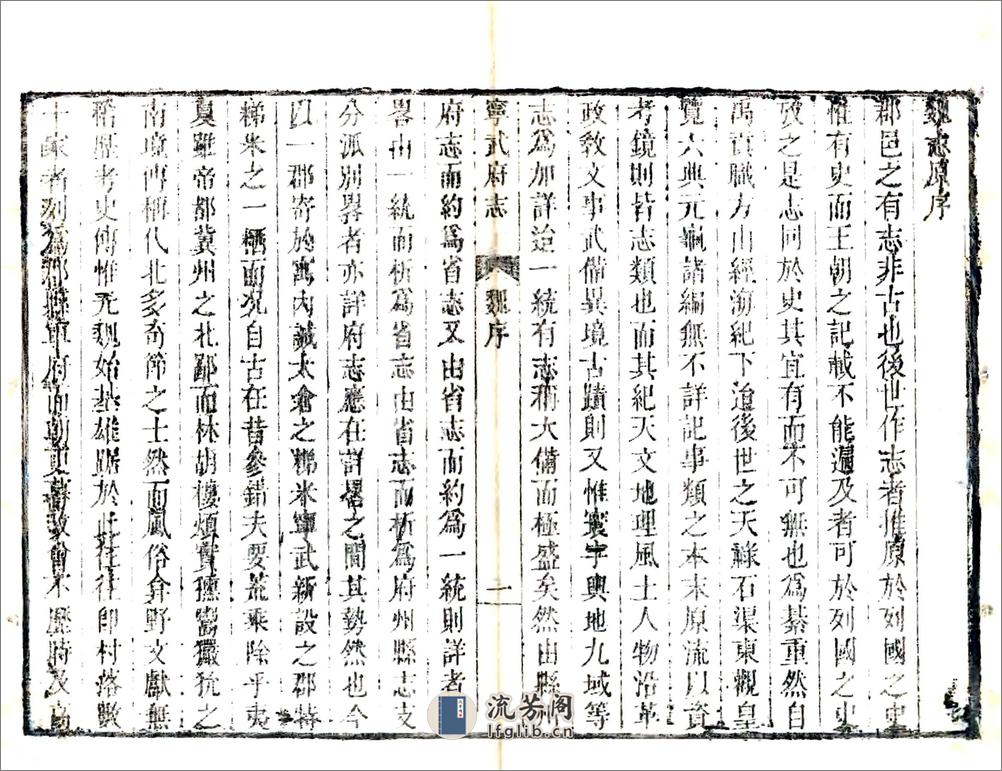 魏志原序
郡邑之有志非古也後世作志者惟原於列國之史
惟有史而王朝之記載不能遍及者可於列國之史
攷之是志同於史其宜有而不可無也為綦重然自
禹貢職方山經海紀下迨後世之天祿石渠東觀皇
覽六典元龜諸編無不詳記事類之本末原流以資
考鏡則皆志類也而其紀天文地理風土人物沿革
政教文事武備異境古蹟則又惟寰宇輿地九域等
志為加詳迨一統有志稱大備而極盛矣然由縣州
寧武府志
魏序
一
府志而約為省志又由省志而約為一統則詳者
畧由一統而析為省志由省志而析為府州縣志支
分派別畧者亦詳府志應在詳畧之間其勢然也今
以一郡寄於寓內誠太倉之稊米寧武新設之郡特
稊米之一栖而况自古在昔參錯夫要荒乘除乎夷
夏雖帝都冀州之北鄙而林胡樓煩實獯鬻玁狁之
南境傳稱代北多奇節之士然而風俗弇野文獻無
稽歷考史傳惟元魏始基雄踞於此往往即村落數
十家者列為郡縣軍府而朝更暮改會不歷時及
流芳阁
lfglib.cn